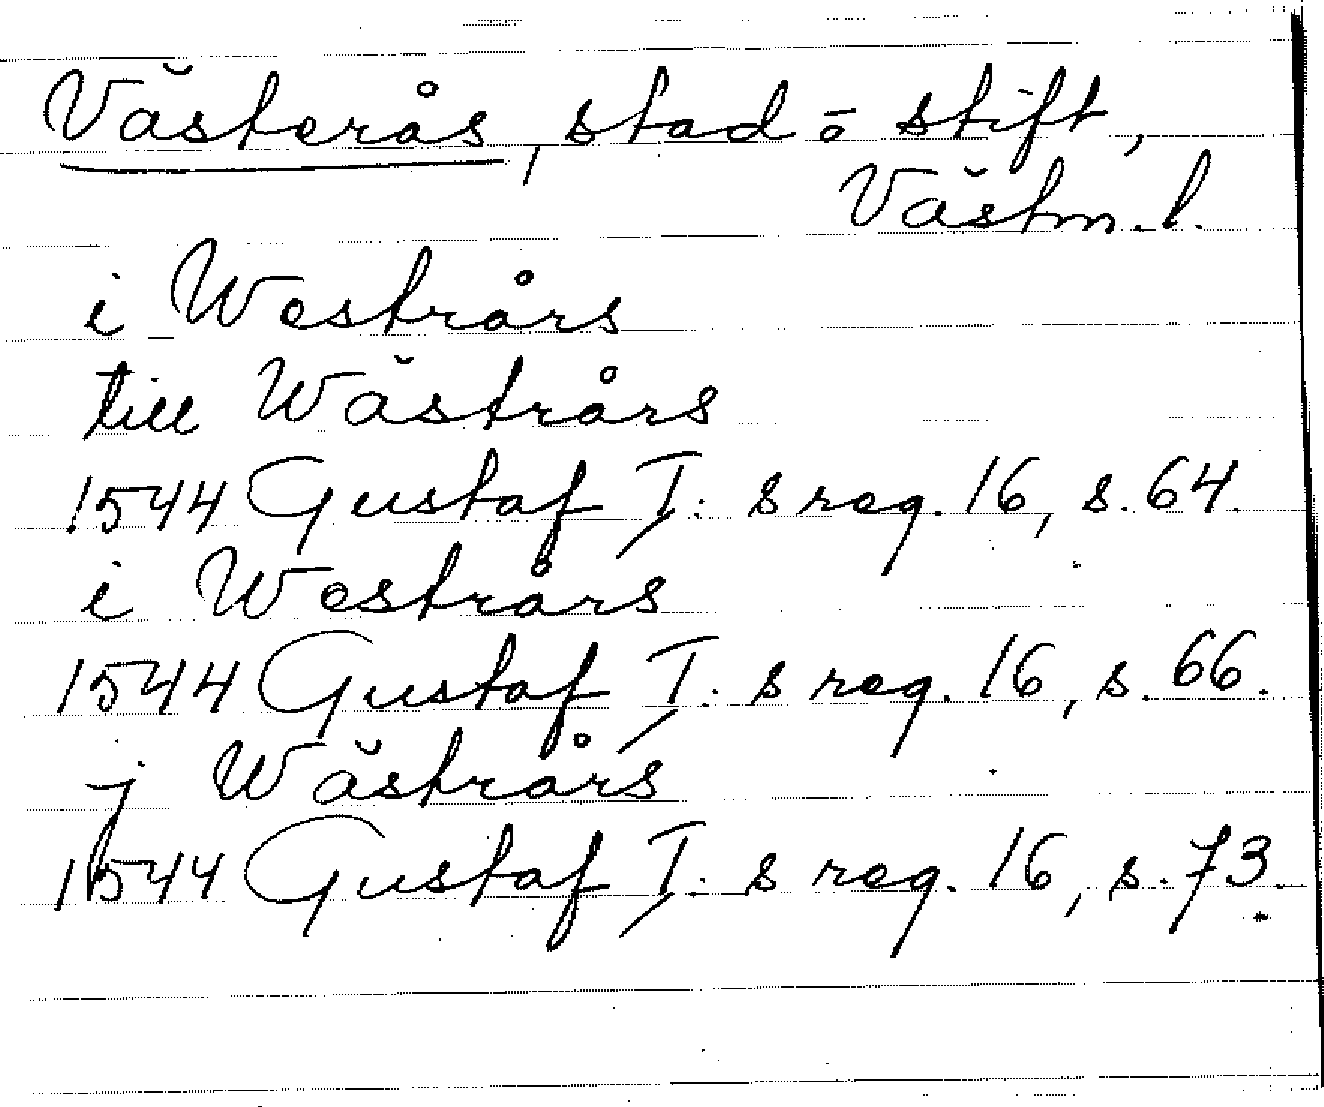 Västerås, stad o stift,
Västm. l.
i Westrårs
till Wästrårs
1544 Gustaf I: s reg. 16, s. 64.
i Westrårs
1544 Gustaf I: s reg. 16, s. 66.
j Wästrårs
1544 Gustaf I: s reg. 16, s. 73.